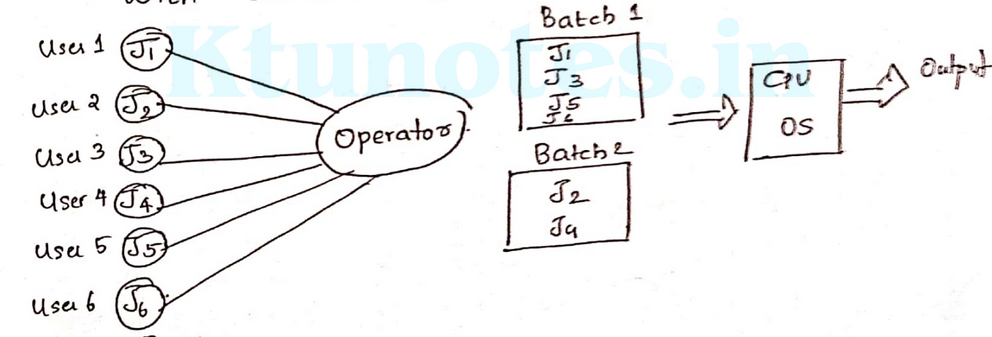 Ktunotes.in
User 1 J1
User 2 J2
User 3 J3
User 4 J4
User 5 J5
User 6 J6
Operator
Batch 1
J1
J3
J5
J6
Batch 2
J2
J4
CPU
OS
Output